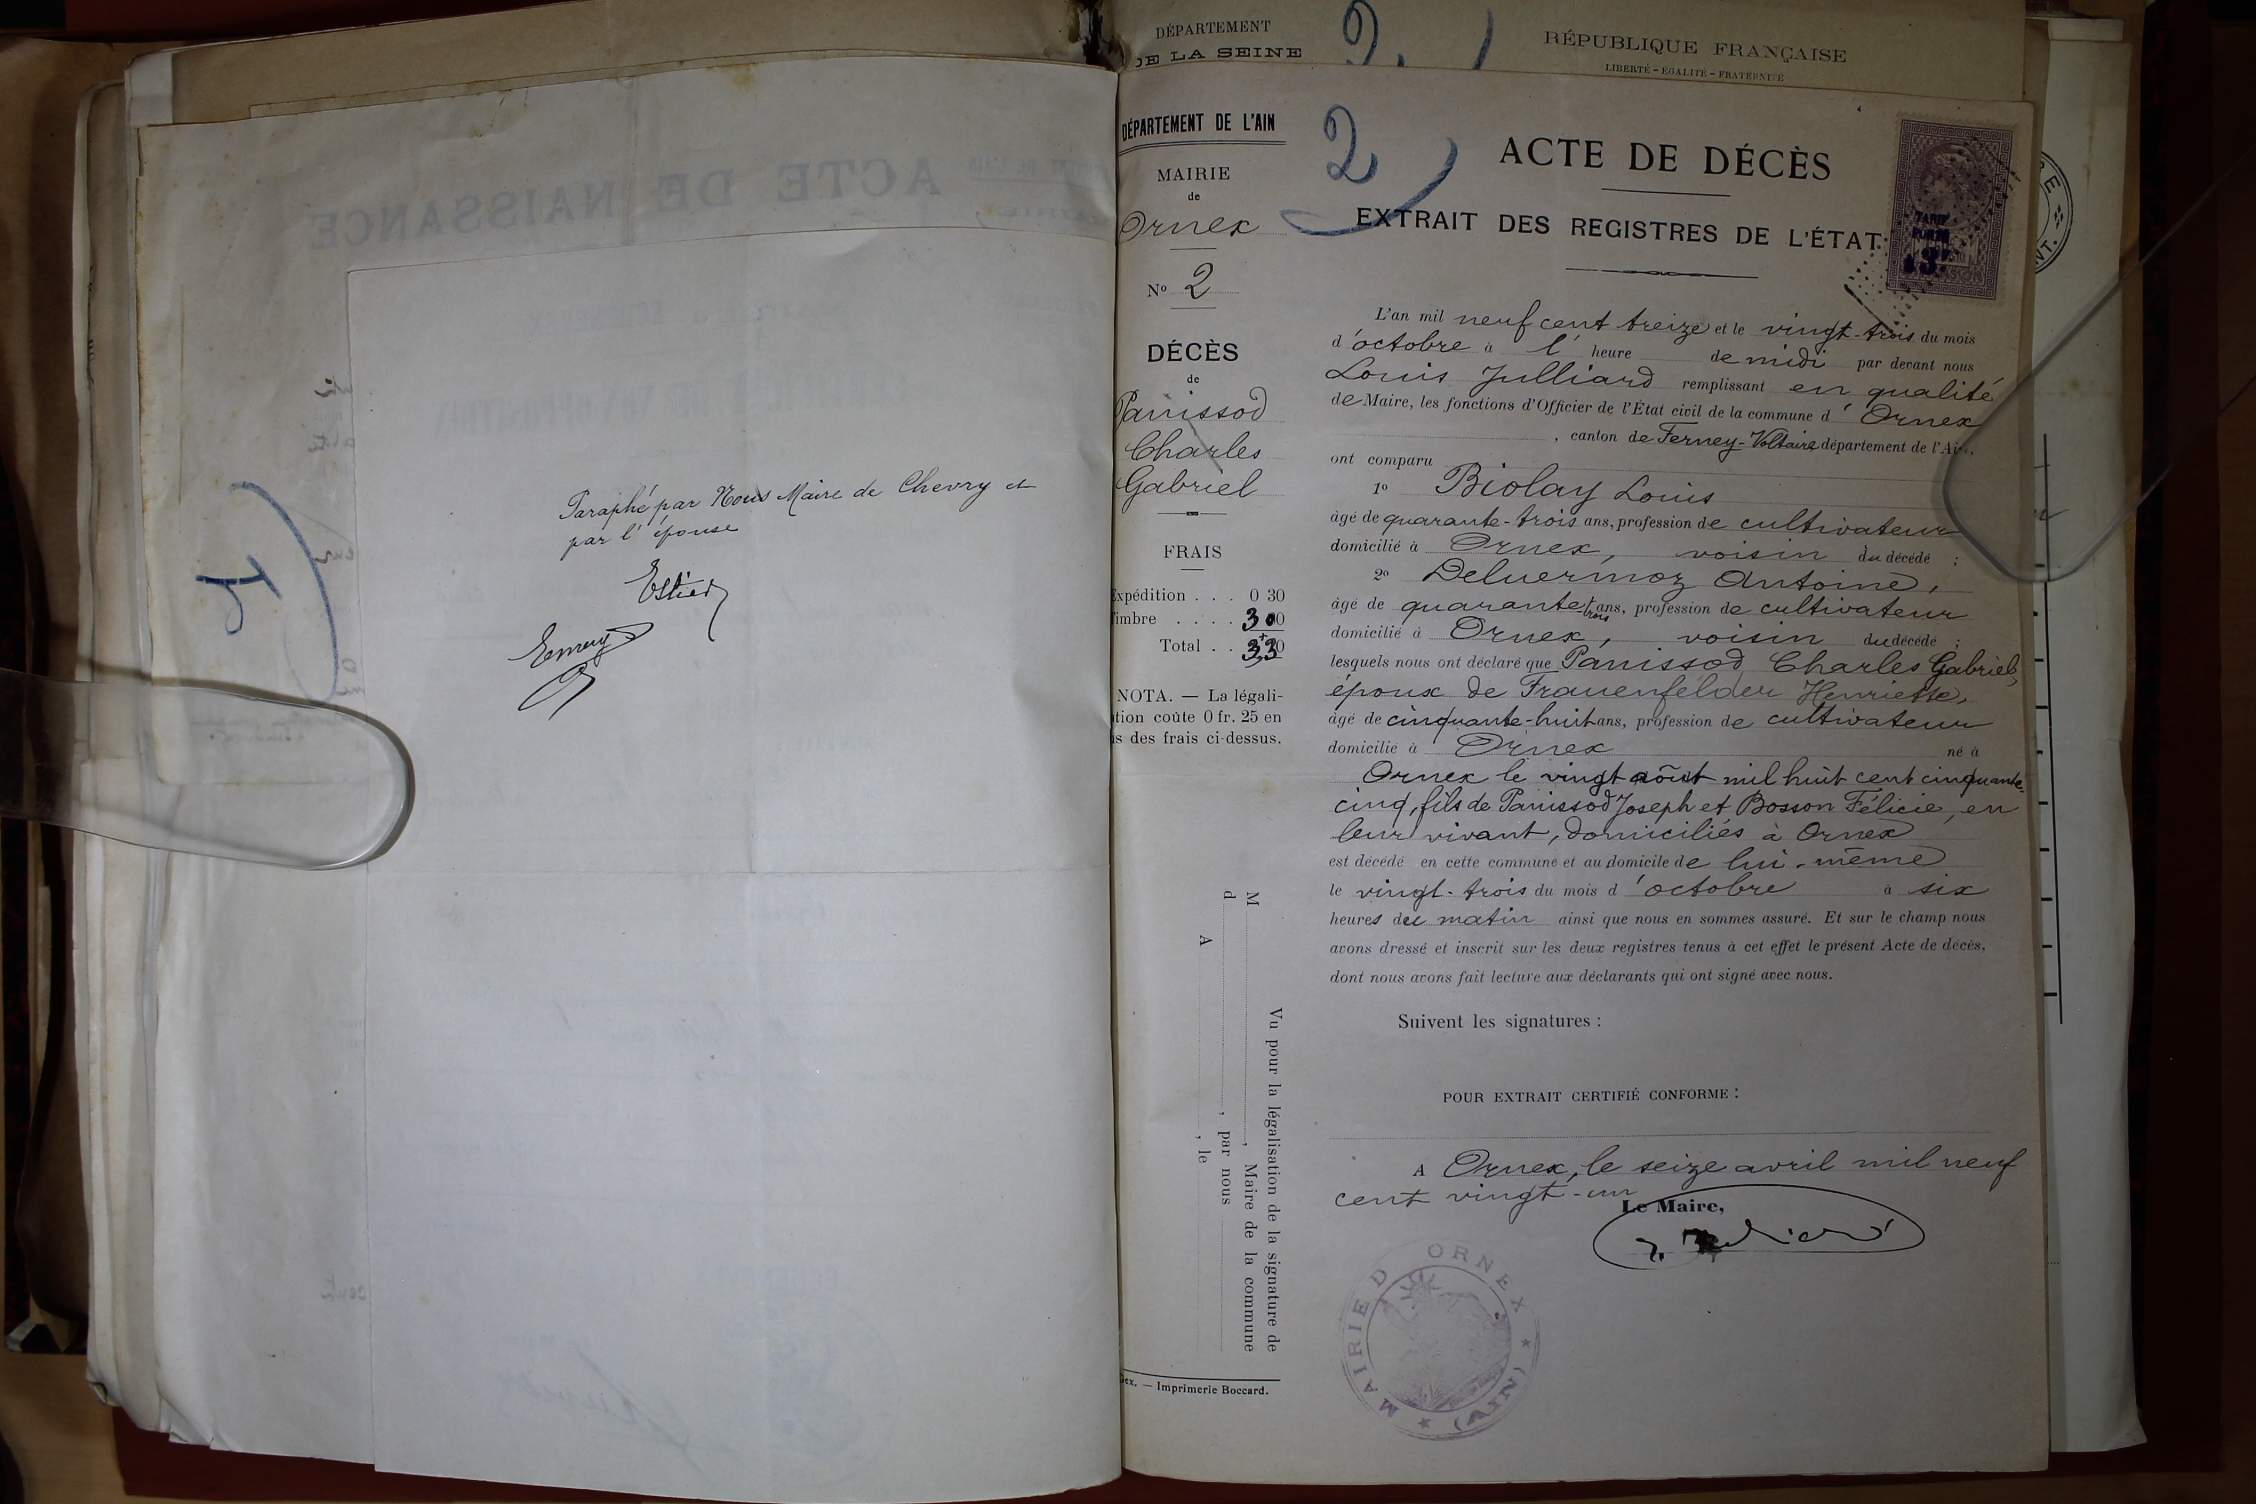 Paraphé par Nous Maire de Chevry et
par l'épouse
DÉPARTEMENT
DE LA SEINE
2
RÉPUBLIQUE FRANÇAISE
LIBERTÉ – ÉGALITÉ – FRATERNITÉ
DÉPARTEMENT DE L'AIN
MAIRIE
de
Ornex
No 2
DÉCÈS
de
Panissod
Charles
Gabriel
FRAIS
Expédition . . . 0 30
Timbre . . . . 3 00
Total . . 3,30
NOTA. — La légali-
sation coûte 0 fr. 25 en
us des frais ci-dessus.
Vu pour la légalisation de la signature de
M , Maire de la commune
d , par nous
A , le
Gex. — Imprimerie Boccard.
2
ACTE DE DÉCÈS
EXTRAIT DES REGISTRES DE L'ÉTAT
L'an mil neuf cent treize et le vingt-trois du mois
d'octobre à l' heure de midi par devant nous
Louis Julliard remplissant en qualité
de Maire, les fonctions d'Officier de l'État civil de la commune d'Ornex
, canton de Ferney-Voltaire département de l'Ain,
ont comparu
1o Biolay Louis
âgé de quarante-trois ans, profession de cultivateur
domicilié à Ornex, voisin du décédé ;
2o Deluermoz Antoine,
âgé de quarante-trois ans, profession de cultivateur
domicilié à Ornex, voisin du décédé ;
lesquels nous ont déclaré que Panissod Charles Gabriel,
époux de Frauenfelder Henriette,
âgé de cinquante-huit ans, profession de cultivateur
domicilié à Ornex né à
Ornex le vingt août mil huit cent cinquante-
cinq, fils de Panissod Joseph et Bosson Félicie, en
leur vivant, domiciliés à Ornex
est décédé en cette commune et au domicile de lui-même
le vingt-trois du mois d'octobre à six
heures du matin ainsi que nous en sommes assuré. Et sur le champ nous
avons dressé et inscrit sur les deux registres tenus à cet effet le présent Acte de décès,
dont nous avons fait lecture aux déclarants qui ont signé avec nous.
Suivent les signatures :
POUR EXTRAIT CERTIFIÉ CONFORME :
A Ornex, le seize avril mil neuf
cent vingt-un
Le Maire,
MAIRIE D'ORNEX (AIN)